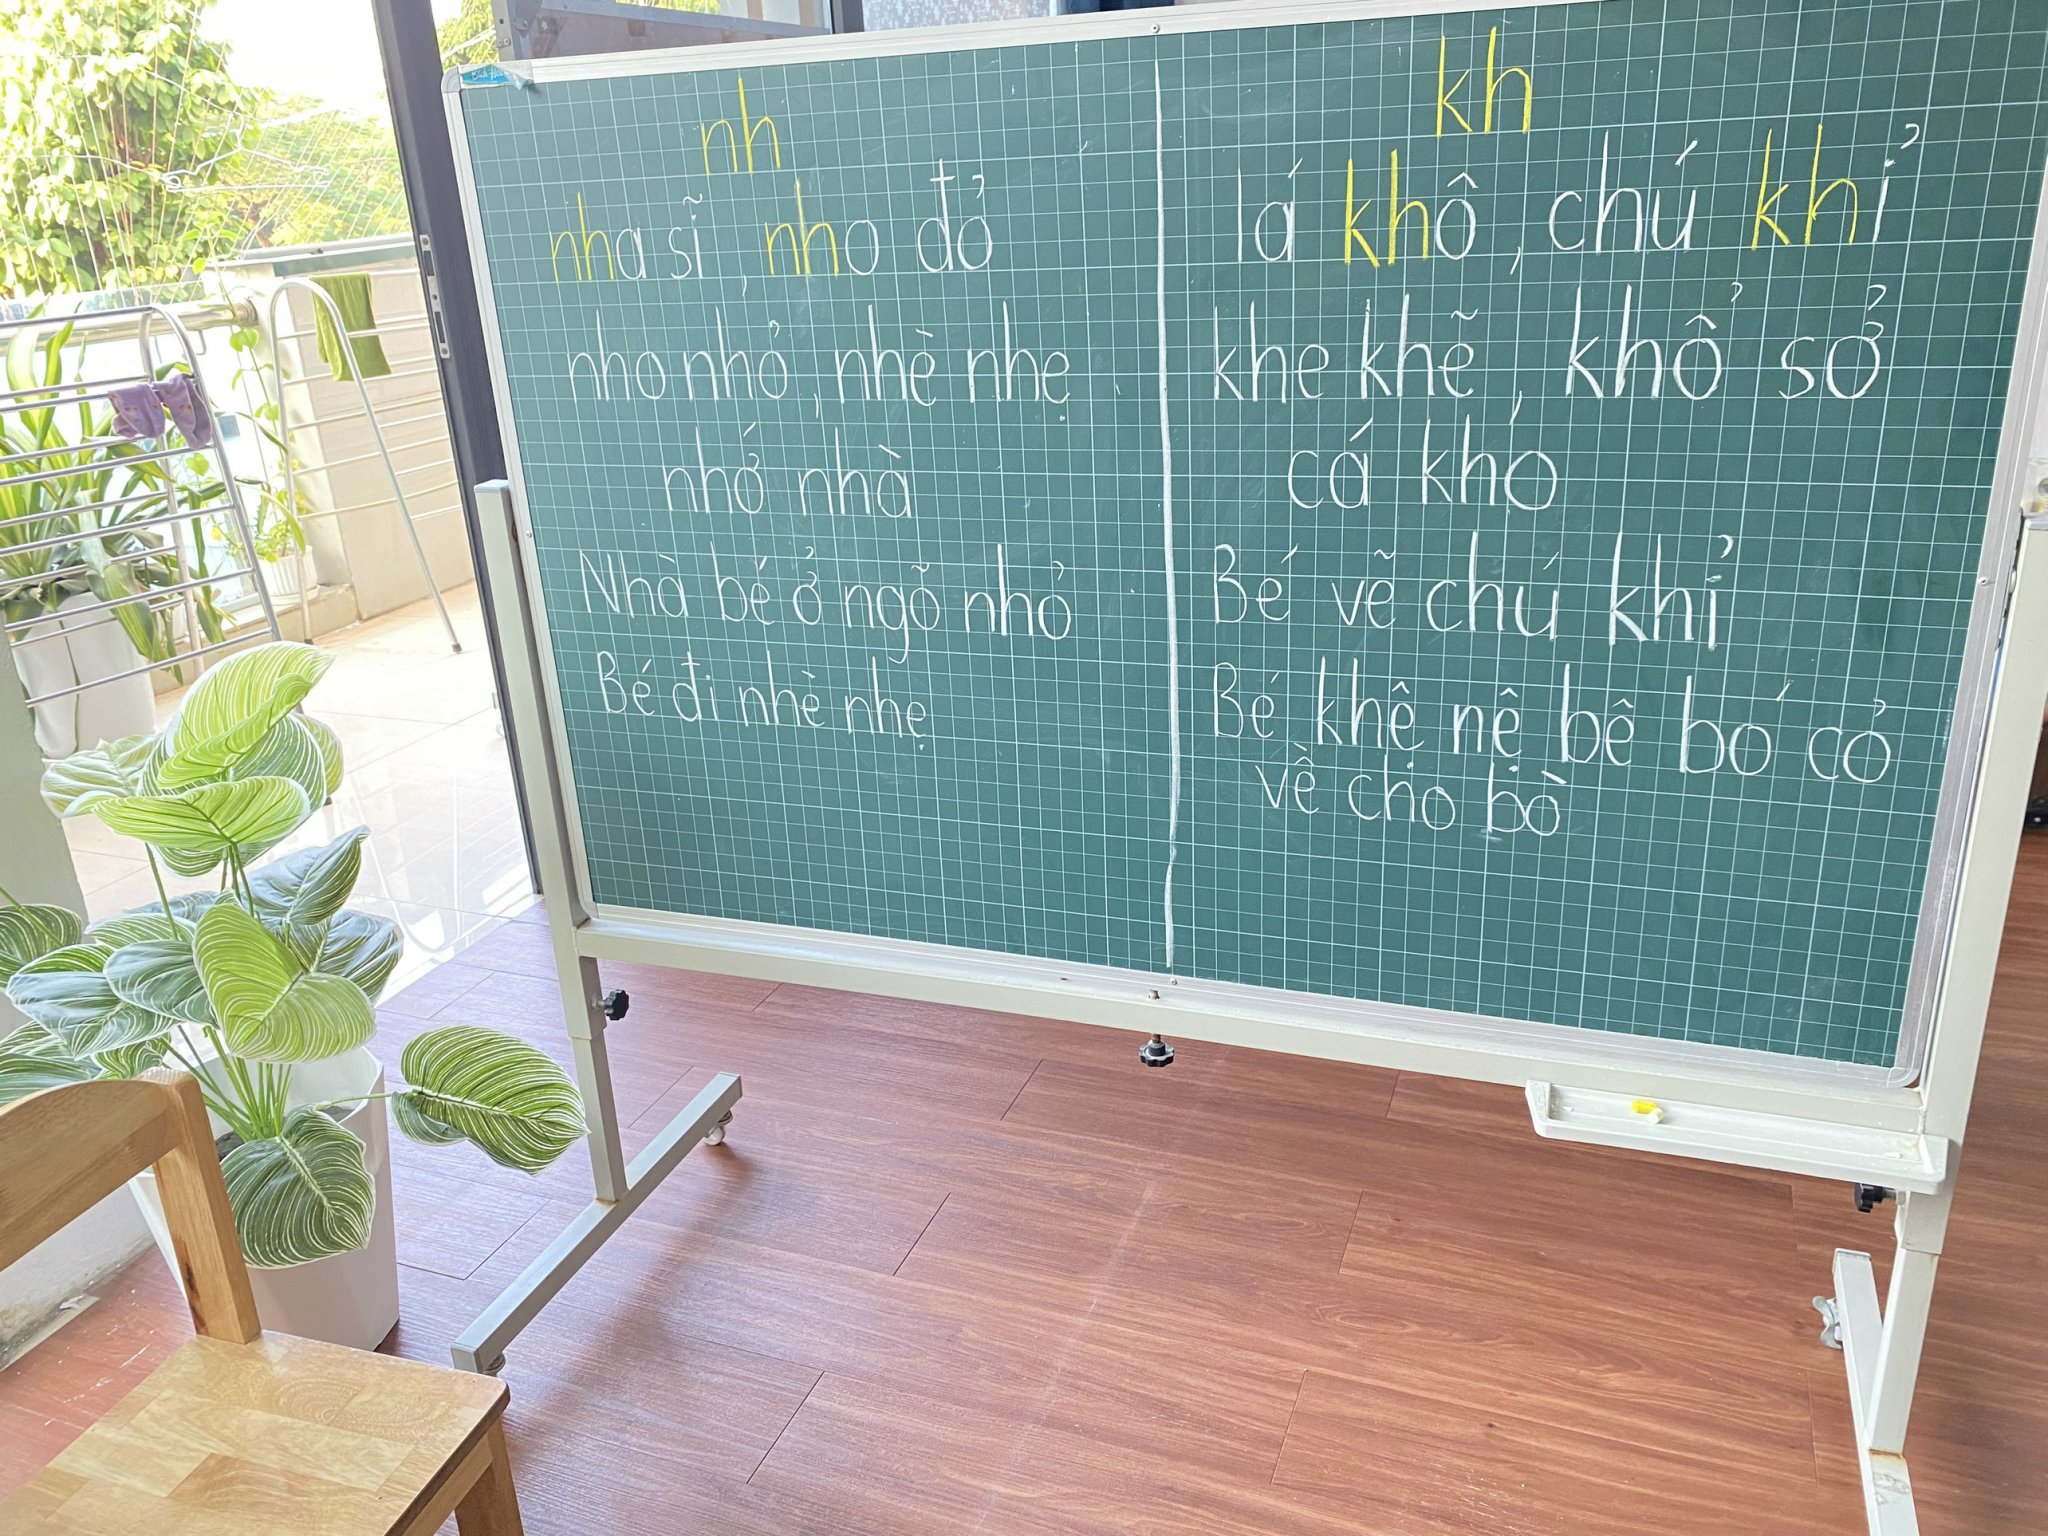 nh
nha sĩ, nho đỏ
nho nhỏ, nhè nhẹ
nhớ nhà
Nhà bé ở ngõ nhỏ
Bé đi nhè nhẹ
kh
lá khô, chú khỉ
khe khẽ, khổ sở
cá kho
Bé vẽ chú khỉ
Bé khệ nệ bê bó cỏ
về cho bò